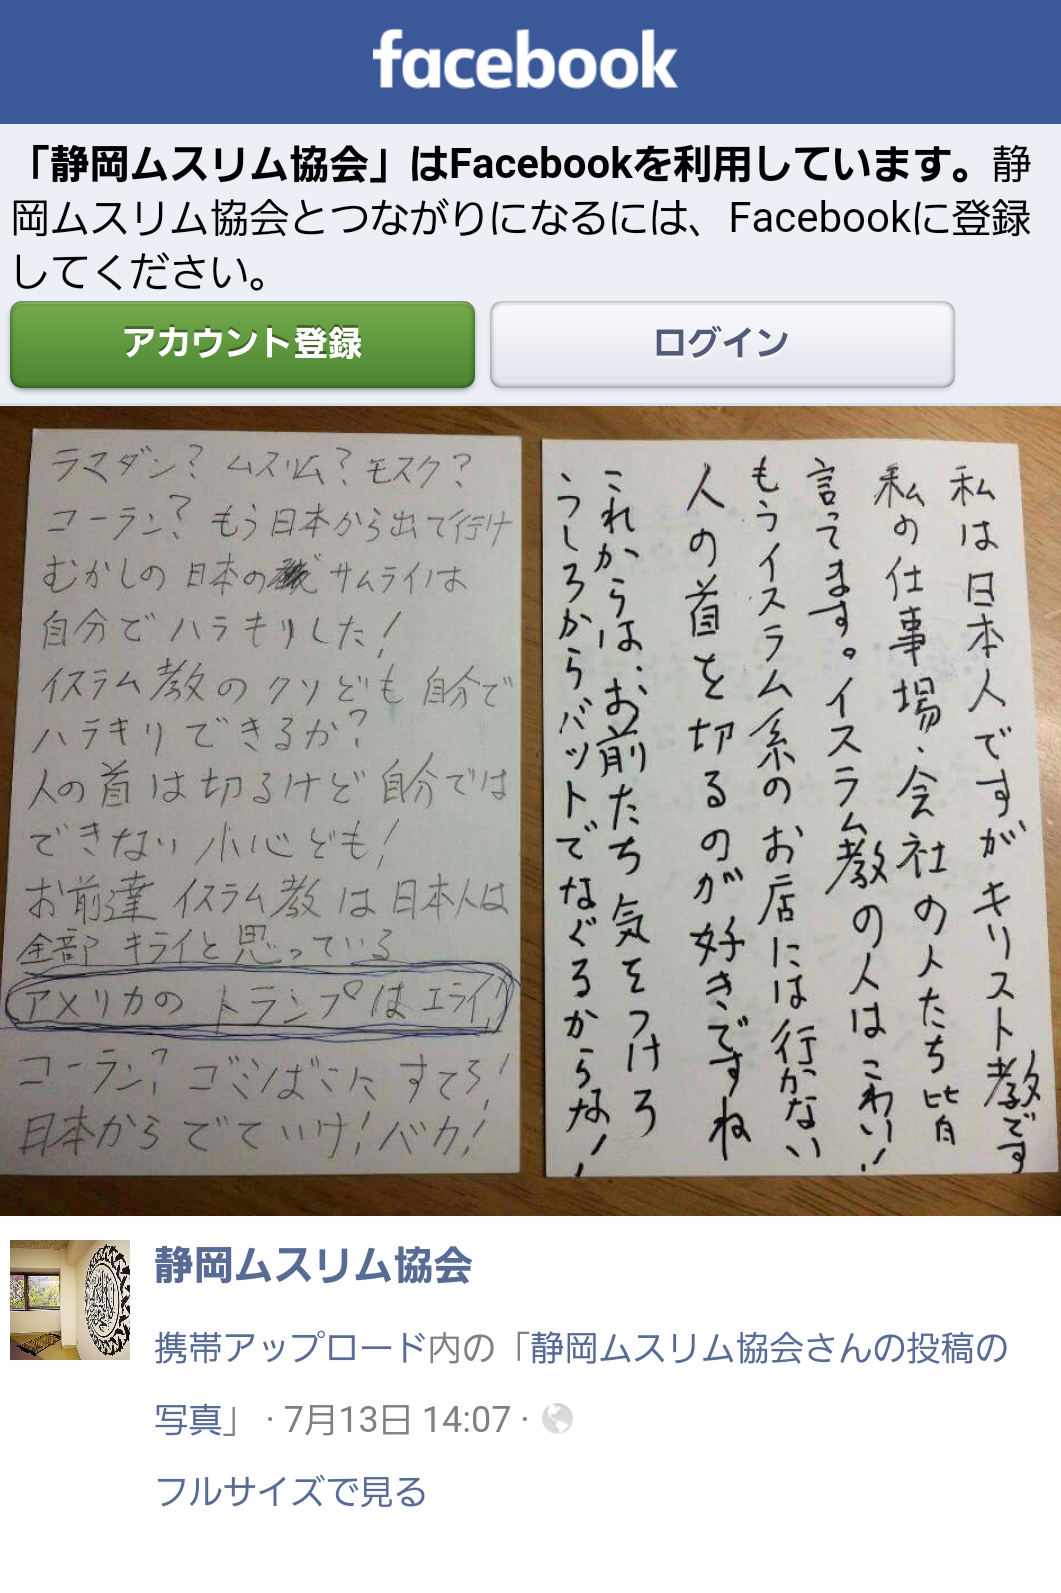 facebook
「静岡ムスリム協会」はFacebookを利用しています。静
岡ムスリム協会とつながりになるには、Facebookに登録
してください。
アカウント登録
ログイン
ラマダン？ムスリム？モスク？
コーラン？もう日本から出て行け
むかしの日本のサムライは
自分でハラキリした！
イスラム教のクソども自分で
ハラキリできるか？
人の首は切るけど自分では
できない小心ども！
お前達イスラム教は日本人は
全部キライと思っている
アメリカのトランプはエライ！
コーラン？ゴミばこにすてろ！
日本からでていけ！バカ！
私は日本人ですがキリスト教です
私の仕事場・会社の人たち皆
言ってます。イスラム教の人はこわい！
もうイスラム系のお店には行かない
人の首を切るのが好きですね
これからは、お前たち気をつけろ
うしろからバットでなぐるからな！
静岡ムスリム協会
携帯アップロード内の「静岡ムスリム協会さんの投稿の
写真」 · 7月13日 14:07 ·
フルサイズで見る